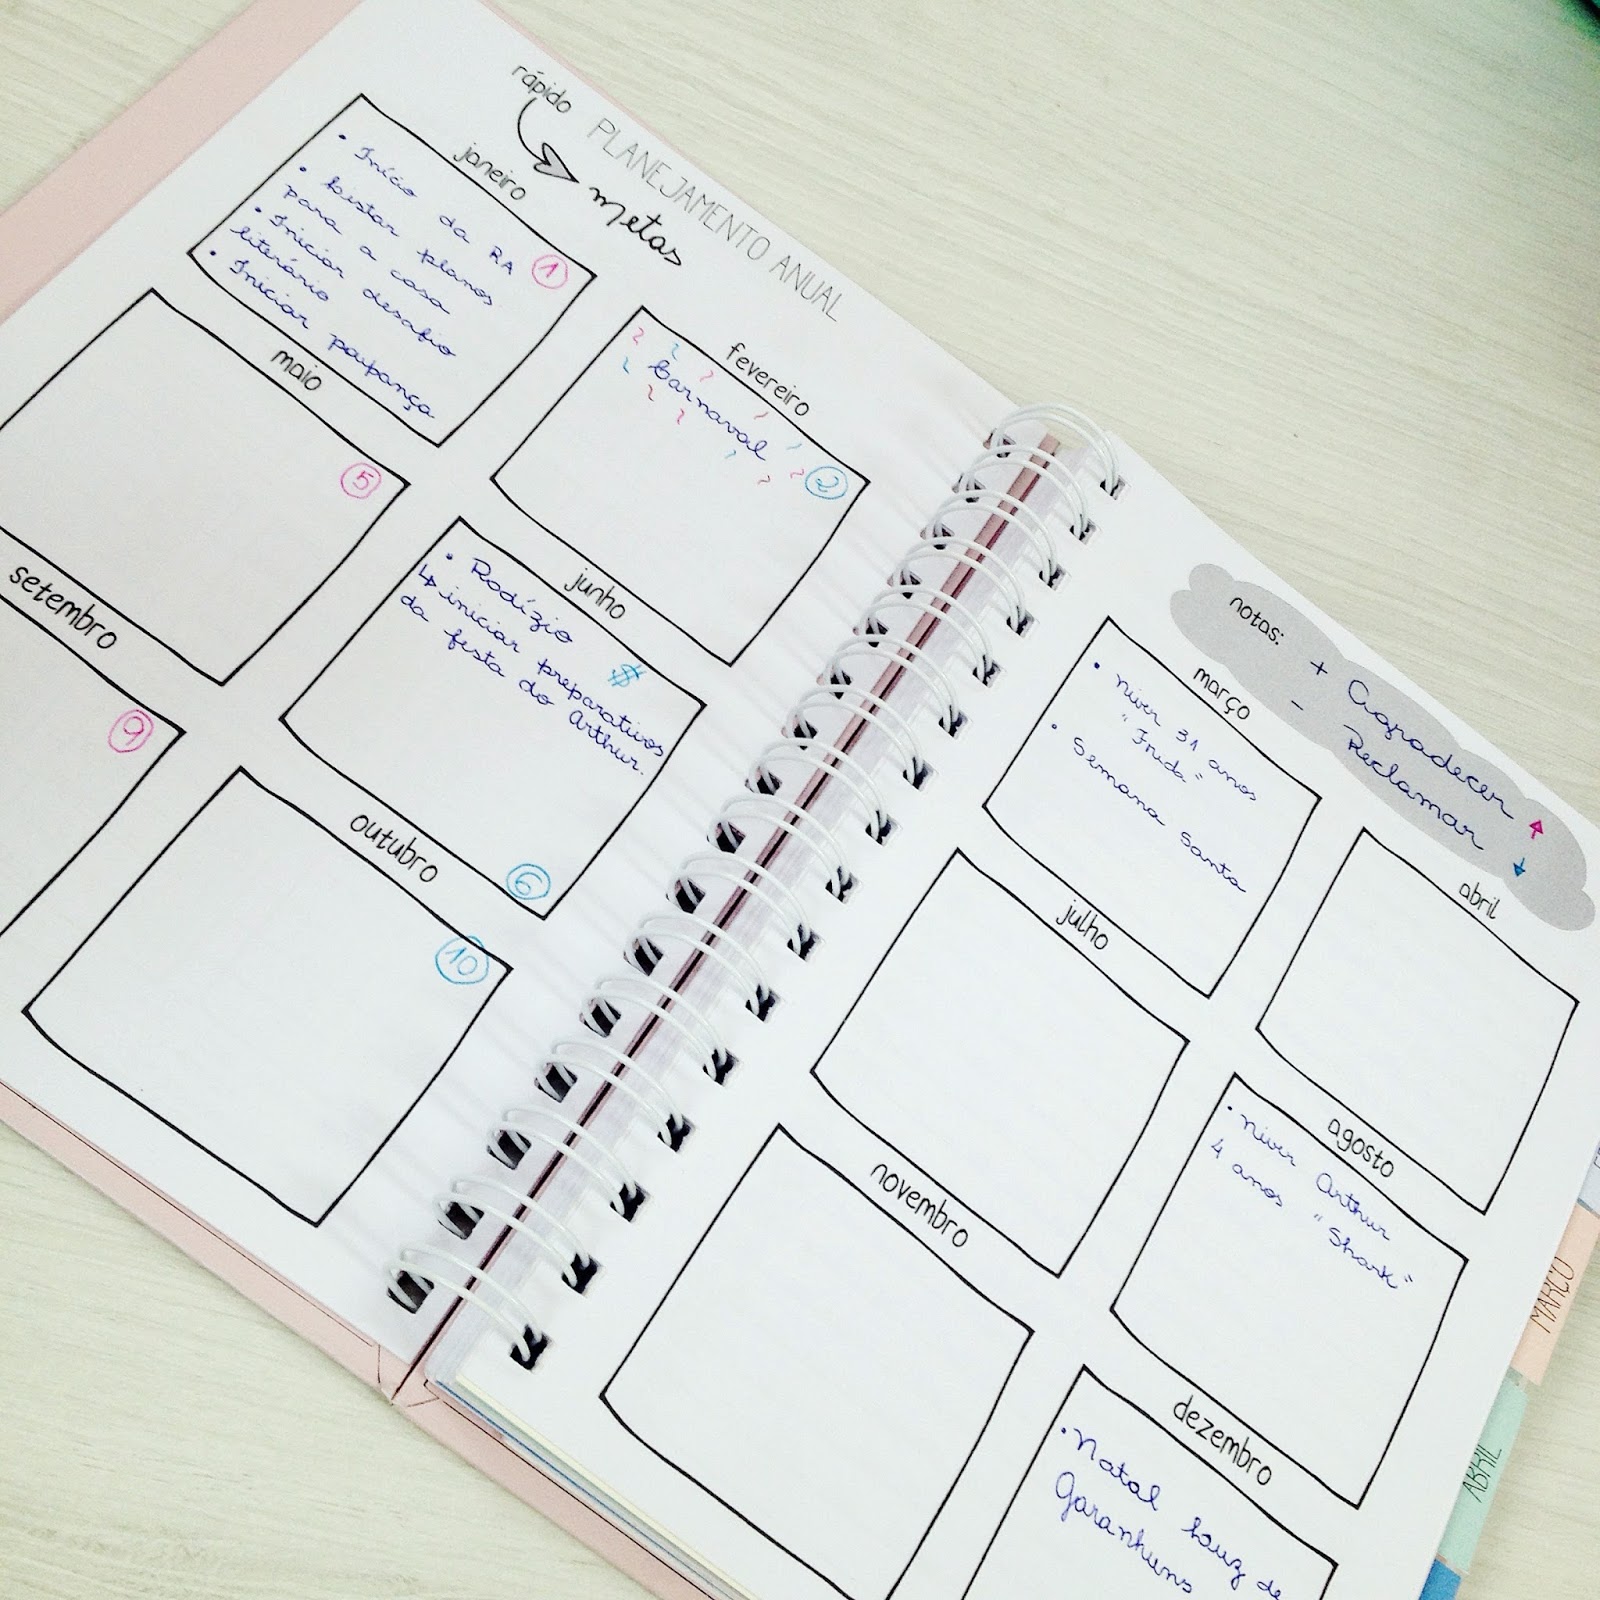 rápido
PLANEJAMENTO ANUAL
metas
janeiro
• Início da RA
1
• Listar planos
para a casa
• Iniciar desafio
literário
• Iniciar poupança
fevereiro
Carnaval
2
maio
5
junho
• Rodízio
↳ iniciar preparativos
da festa do Arthur.
$
6
setembro
9
outubro
10
notas:
+ Agradecer ↑
- Reclamar ↓
março
• Niver 31 anos
"Frida"
• Semana Santa
abril
julho
agosto
• Niver Arthur
4 anos "Shark"
novembro
dezembro
• Natal Luz de
Garanhuns
MARÇO
ABRIL